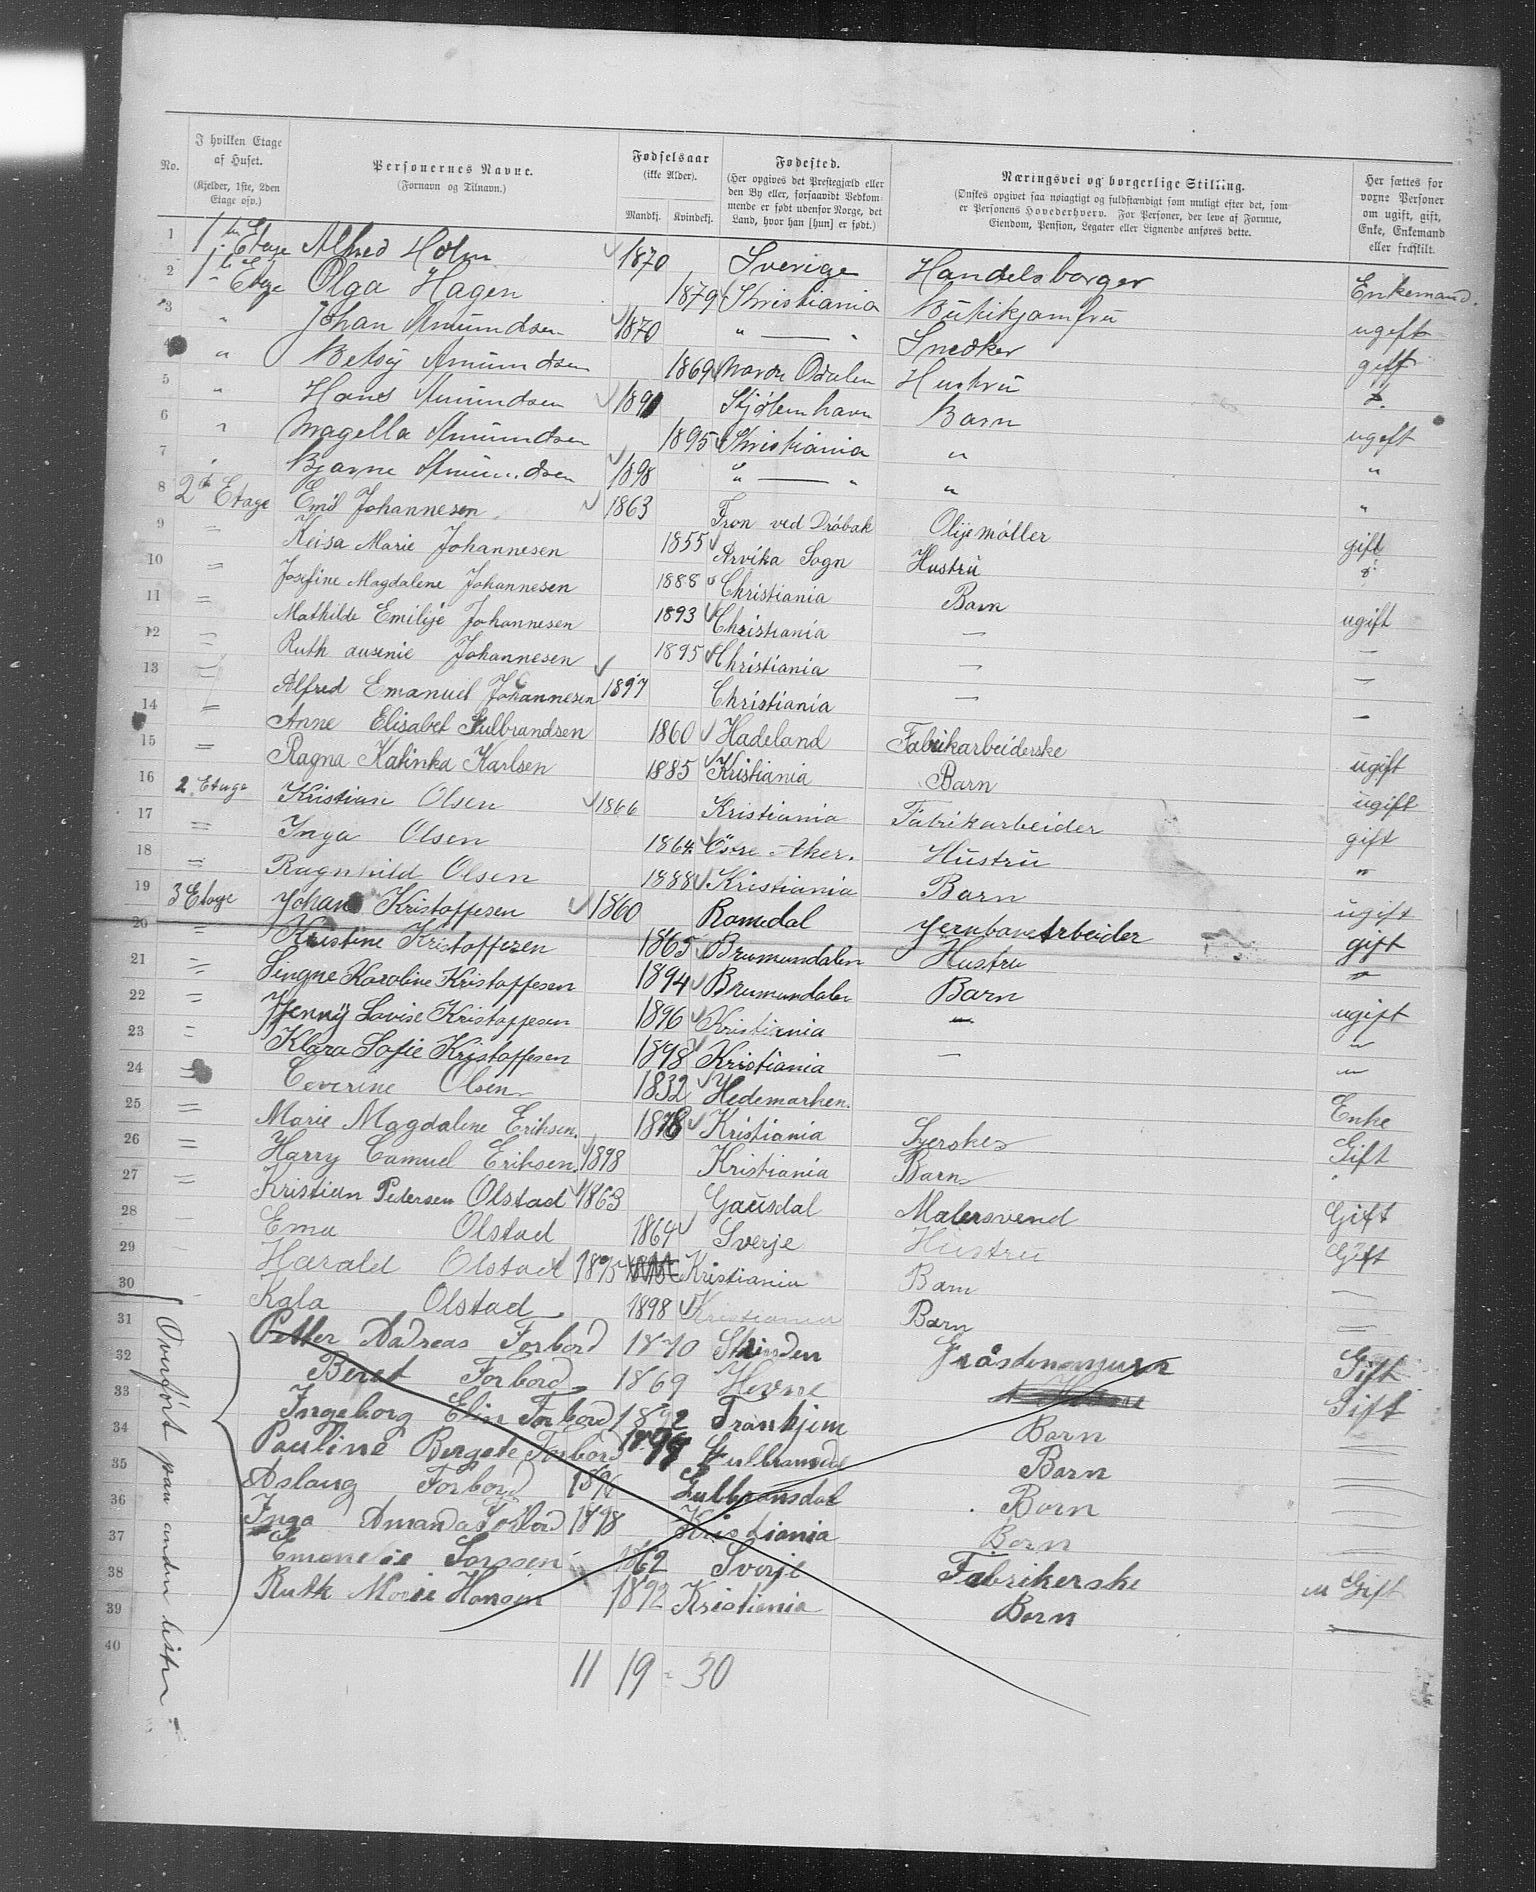 No.
I hvilken Etage af Huset. (Kjelder, 1ste, 2den Etage osv.)
Personernes Navne. (Fornavn og Tilnavn.)
Fødselsaar (ikke Alder). Mandkj. Kvindekj.
Fødested. (Her opgives det Prestegjæld eller den By eller, forsaavidt Vedkommende er født udenfor Norge, det Land, hvor han [hun] er født.)
Næringsvei og borgerlige Stilling. (Ønskes opgivet saa nøiagtigt og fuldstændigt som muligt efter det, som er Personens Hovederhverv. For Personer, der leve af Formue, Eiendom, Pension, Legater eller Lignende anføres dette.
Her sættes for voxne Personer om ugift, gift, Enke, Enkemand eller fraskilt.
1 1ste Etage Alfred Holm 1870 Sverige Handelsborger Enkemand.
2 1ste Etage Olga Hagen 1879 Kristiania Butikjomfru ugift
3 " Johan Amundsen 1870 " — " Snedker gift
4 " Betsy Amundsen 1869 Nordre Odalen Hustru
5 " Hans Amundsen 1891 Kjøbenhavn Barn ugift
6 " Magella Amundsen 1895 Kristiania " "
7 " Bjarne Amundsen 1898 " — " " "
8 2d Etage Emil Johannesen 1863 Fron ved Dröbak Olijemøller gift
9 " Keisa Marie Johannesen 1855 Arvika Sogn Hustru
10 " Josefine Magdalene Johannesen 1888 Christiania Barn ugift
11 " Mathilde Emilije Johannesen 1893 Christiania — —
12 " Ruth ausenie Johannesen 1895 Christiania — —
13 " Alfred Emanuel Johannesen 1897 Christiania — —
14 " Anne Elisabet Gulbrandsen 1860 Hadeland Fabrikarbeiderske ugift
15 " Ragna Katinka Karlsen 1885 Kristiania Barn ugift
16 2 Etage Kristian Olsen 1866 Kristiania Fabrikarbeider gift
17 " Inga Olsen 1864 Östre Aker. Hustru "
18 " Ragnhild Olsen 1888 Kristiania Barn ugift
19 3 Etage Johan Kristoffesen 1860 Romedal Jernbanearbeider gift
20 " Kristine Kristoffesen 1865 Brumundalen Hustru "
21 " Singne Karoline Kristoffesen 1894 Brumundalen Barn ugift
22 " Jenny Lovise Kristoffesen 1896 Kristiania — "
23 " Klara Sofie Kristoffesen 1898 Kristiania — "
24 " Ceverine Olsen 1832 Hedemarken. Enke
25 " Marie Magdalene Eriksen. 1878 Kristiania Syerske Gift
26 " Harry Camuel Eriksen. 1898 Kristiania Barn
27 " Kristian Pedersen Olstad 1863 Gausdal Malersvend Gift
28 Ema Olstad 1864 Sverje Hustru Gift
29 Harald Olstad 1895 Kristiania Barn
30 Kala Olstad 1898 Kristiania Barn
31 Petter Andreas Forbord 1870 Strinden Gift
32 Beret Forbord 1869 Hevne Gift
33 Ingeborg Elin Forbord 1892 Tronhjem Barn
34 Pauline Bergete Forbord Gulbransdal Barn
35 Aslaug Forbord 1896 Gulbransdal Barn
36 Inga Amanda Forbord 1898 Kristiania Barn
37 Larssen 1862 Sverje Fabrikerske u Gift
38 Ruth Marie Hansen 1892 Kristiania Barn
39
40
Overført paa anden liste.
11 19 = 30